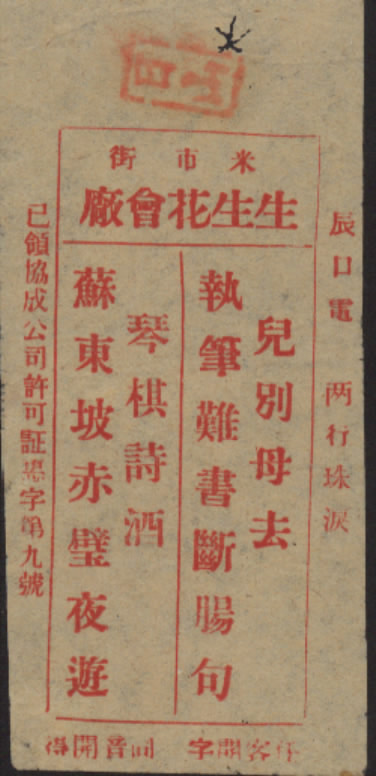 米市街
生生花會廠
辰口電 两行珠淚
兒別母去
執筆難書斷腸句
琴棋詩酒
蘇東坡赤璧夜遊
已領協成公司許可証字第九號
客開字 音開得